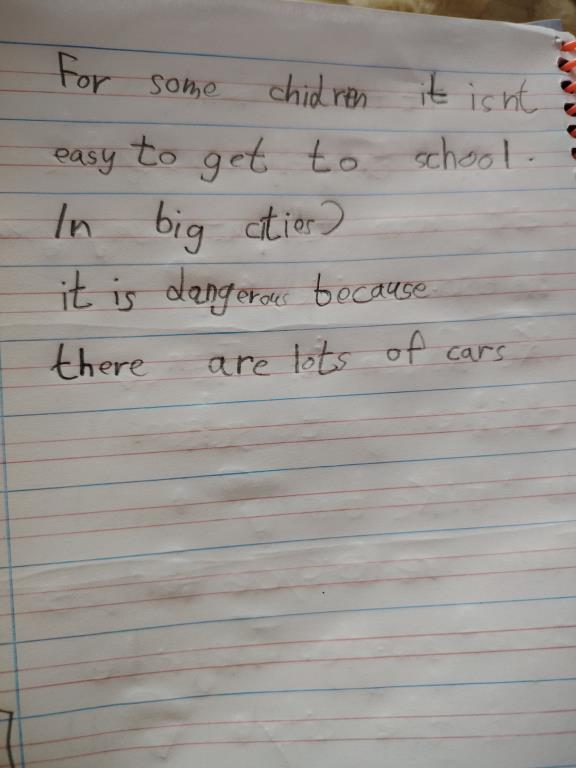 For some chidren it isnt
easy to get to school.
In big cities)
it is dangerous because
there are lots of cars